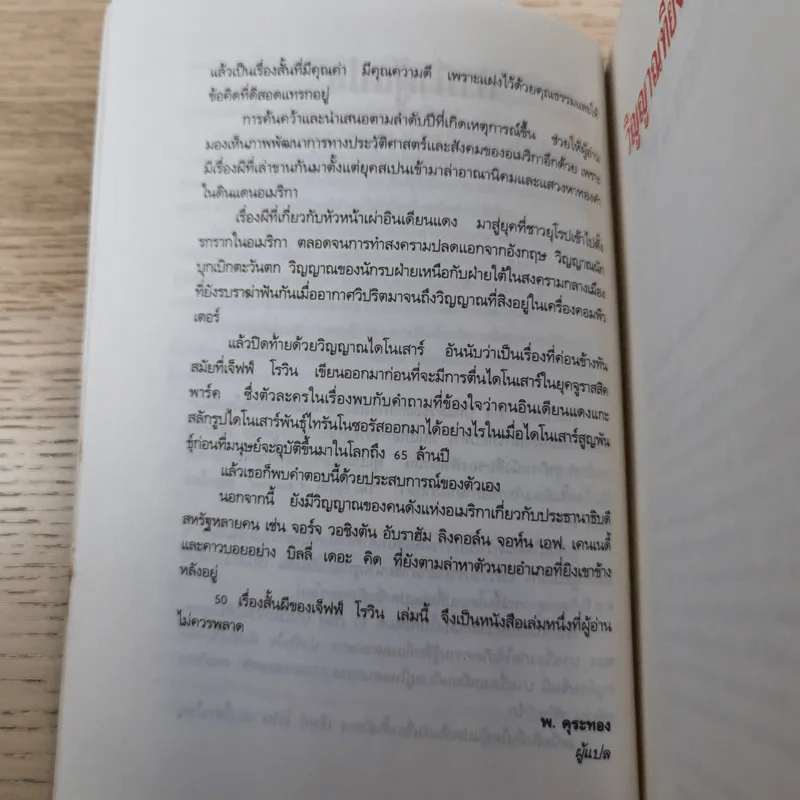 แล้วเป็นเรื่องสั้นที่มีคุณค่า มีคุณความดี เพราะแฝงไว้ด้วยคุณธรรมและให้
ข้อคิดที่ดีสอดแทรกอยู่
การค้นคว้าและนำเสนอตามลำดับปีที่เกิดเหตุการณ์ขึ้น ช่วยให้ผู้อ่าน
มองเห็นภาพพัฒนาการทางประวัติศาสตร์และสังคมของอเมริกาอีกด้วย เพราะ
มีเรื่องผีที่เล่าขานกันมาตั้งแต่ยุคสเปนเข้ามาล่าอาณานิคมและแสวงหาทองคำ
ในดินแดนอเมริกา
เรื่องผีที่เกี่ยวกับหัวหน้าเผ่าอินเดียนแดง มาสู่ยุคที่ชาวยุโรปเข้าไปตั้ง
รกรากในอเมริกา ตลอดจนการทำสงครามปลดแอกจากอังกฤษ วิญญาณนัก
บุกเบิกตะวันตก วิญญาณของนักรบฝ่ายเหนือกับฝ่ายใต้ในสงครามกลางเมือง
ที่ยังรบราฆ่าฟันกันเมื่ออากาศวิปริตมาจนถึงวิญญาณที่สิงอยู่ในเครื่องคอมพิว
เตอร์
แล้วปิดท้ายด้วยวิญญาณไดโนเสาร์ อันนับว่าเป็นเรื่องที่ค่อนข้างทัน
สมัยที่เจ็ฟฟ์ โรวิน เขียนออกมาก่อนที่จะมีการตื่นไดโนเสาร์ในยุคจูราสสิค
พาร์ค ซึ่งตัวละครในเรื่องพบกับคำถามที่ข้องใจว่าคนอินเดียนแดงแกะ
สลักรูปไดโนเสาร์พันธุ์ไทรันโนซอรัสออกมาได้อย่างไรในเมื่อไดโนเสาร์สูญพัน
ธุ์ก่อนที่มนุษย์จะอุบัติขึ้นมาในโลกถึง 65 ล้านปี
แล้วเธอก็พบคำตอบนี้ด้วยประสบการณ์ของตัวเอง
นอกจากนี้ ยังมีวิญญาณของคนดังแห่งอเมริกาเกี่ยวกับประธานาธิบดี
สหรัฐหลายคน เช่น จอร์จ วอชิงตัน อับราฮัม ลิงคอล์น จอห์น เอฟ. เคนเนดี้
และคาวบอยอย่าง บิลลี่ เดอะ คิด ที่ยังตามล่าหาตัวนายอำเภอที่ยิงเขาข้าง
หลังอยู่
50 เรื่องสั้นผีของเจ็ฟฟ์ โรวิน เล่มนี้ จึงเป็นหนังสือเล่มหนึ่งที่ผู้อ่าน
ไม่ควรพลาด
พ. คุระทอง
ผู้แปล